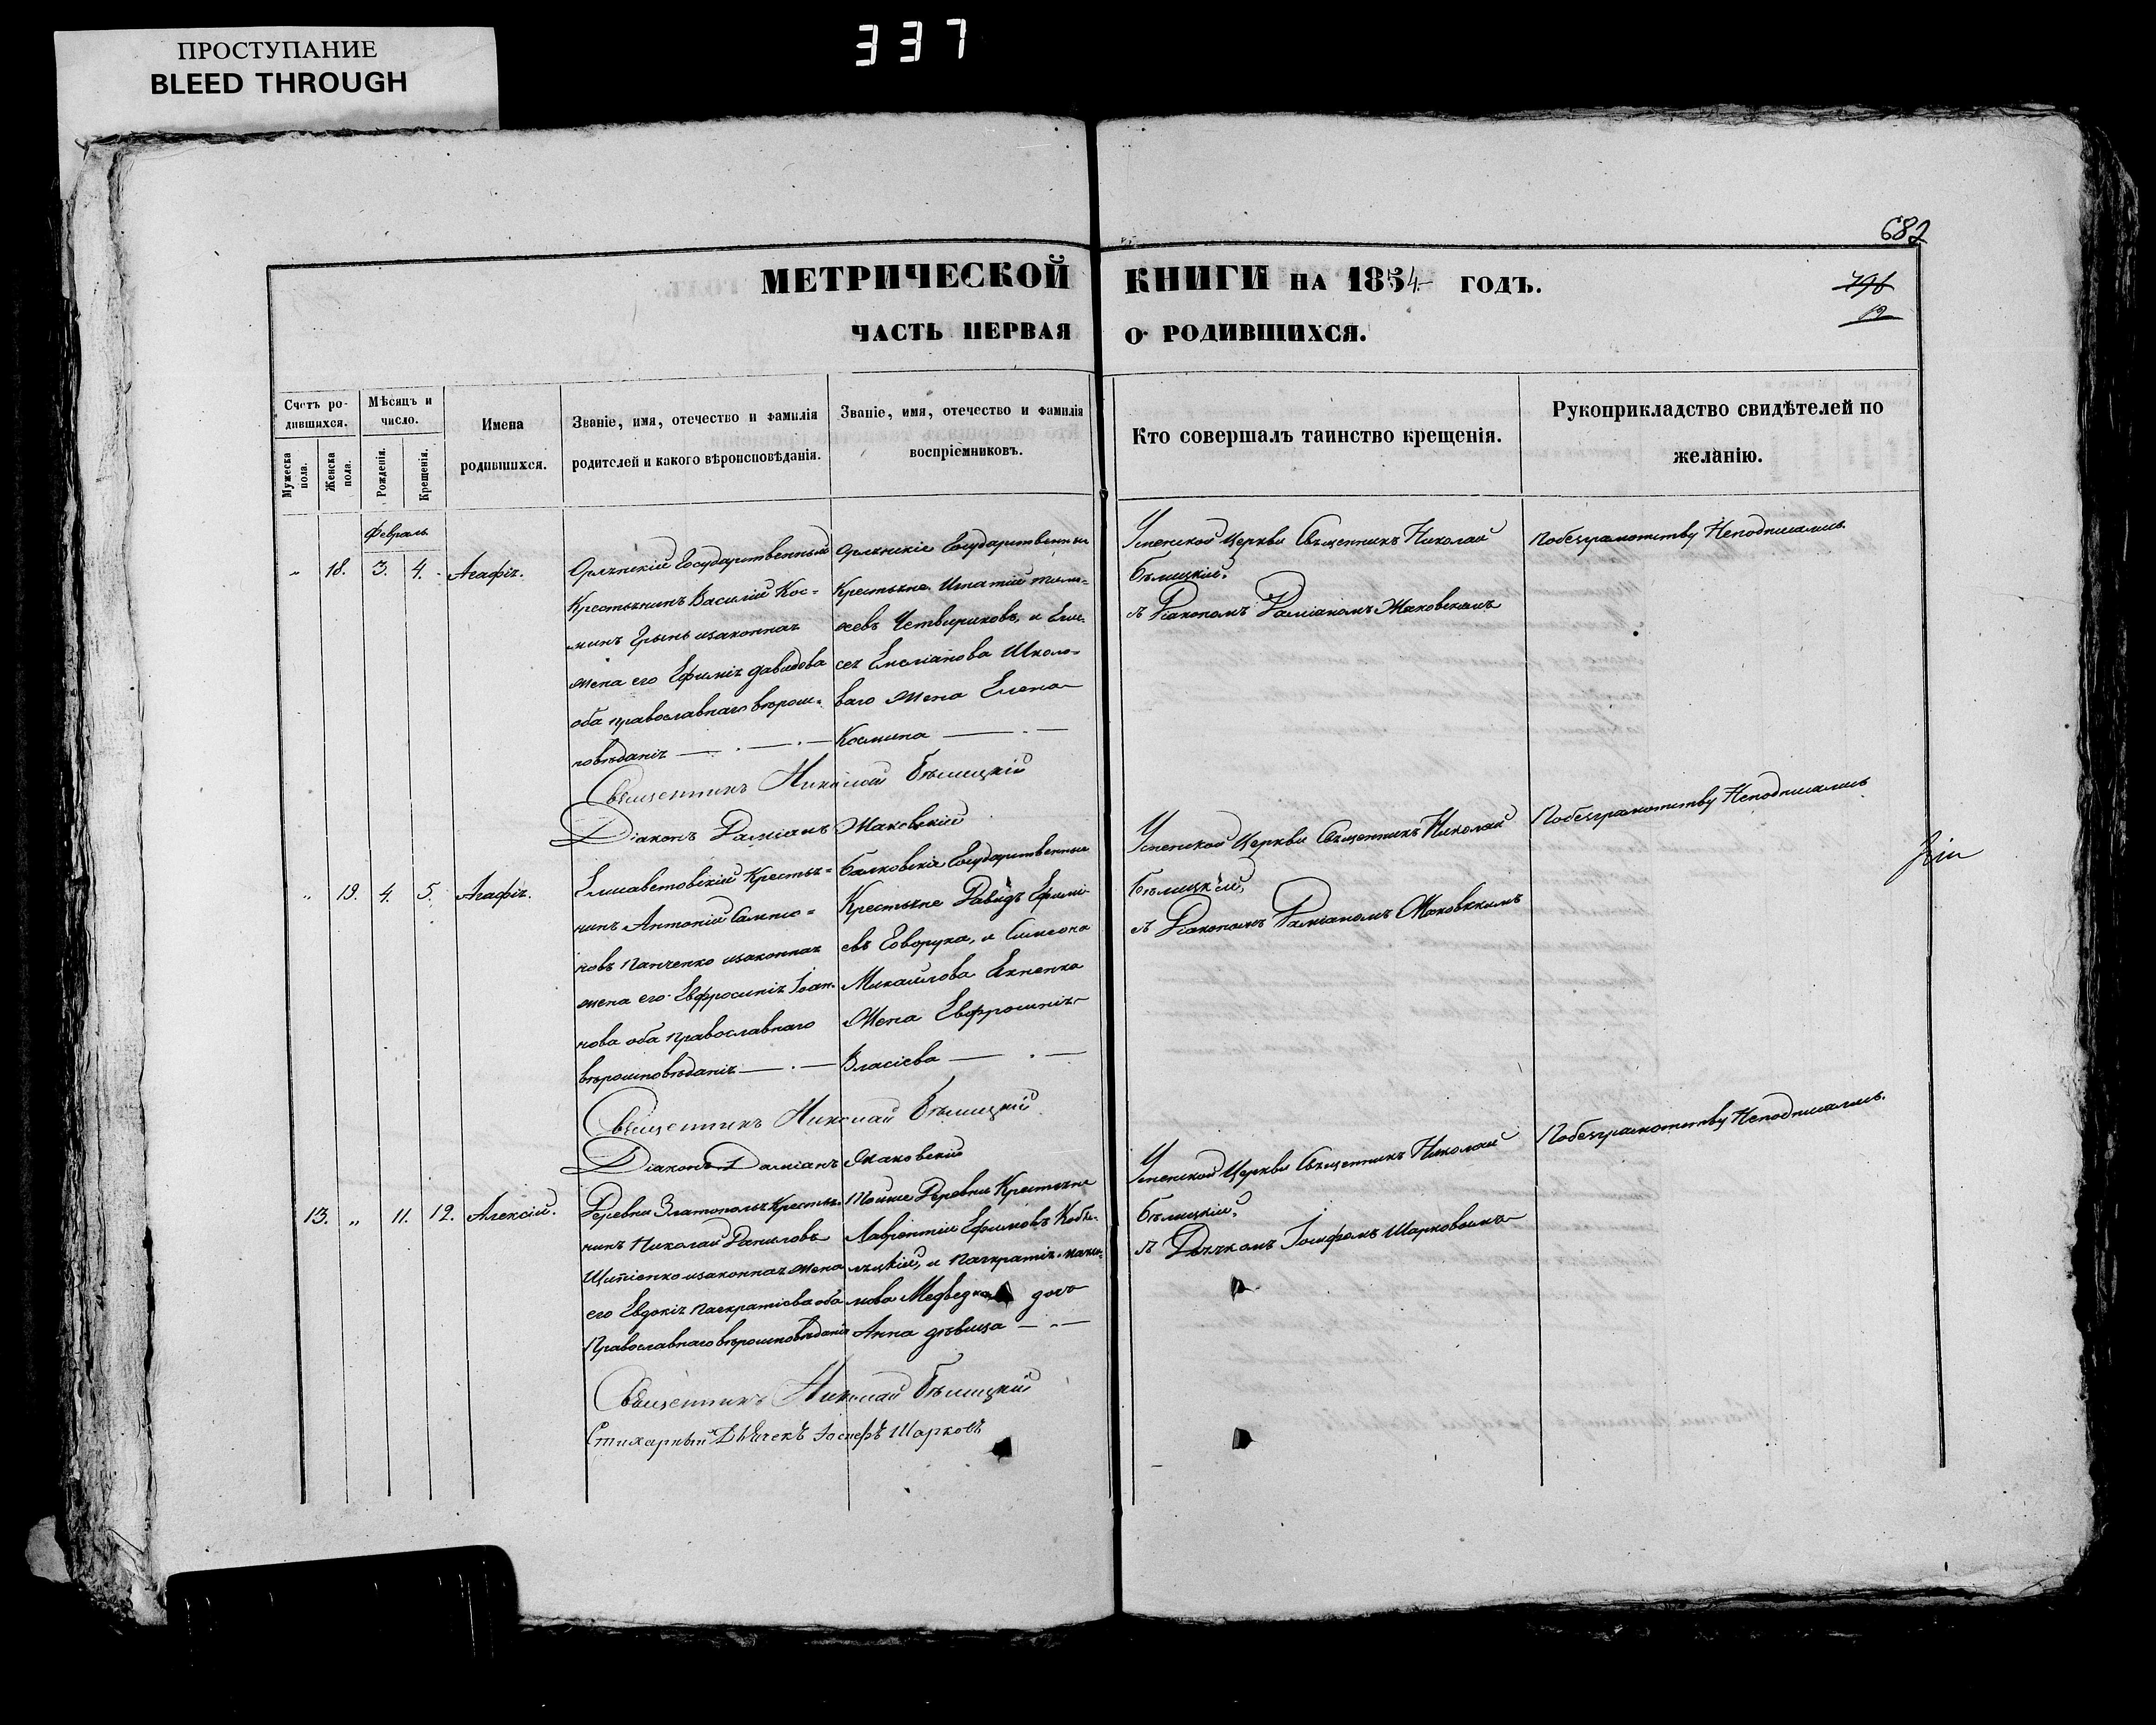 ПРОСТУПАНИЕ
BLEED THROUGH
337
682
МЕТРИЧЕСКОЙ КНИГИ НА 1854 ГОДЪ.
12
ЧАСТЬ ПЕРВАЯ О РОДИВШИХСЯ.
Счетъ родившихся.
Мужеска пола.
Женска пола.
Мѣсяцъ и число.
Рожденія.
Крещенія.
Имена родившихся.
Званіе, имя, отечество и фамилія
родителей и какого вѣроисповѣданія.
Званіе, имя, отечество и фамилія
воспріемниковъ.
Кто совершалъ таинство крещенія.
Рукоприкладство свидѣтелей по
желанію.
Февраль
„ 18. 3. 4. Агафія.
Орлянскій Государственный
Крестьянинъ Василій Кос=
минъ изаконная
жена его Ефимія Давидова
оба православнаго вѣроис=
повѣданія
Орлянскіе Государственные
Крестьяне Игнатій Тимо=
ѳеевъ Четвериковъ, и Ели-
сея Емеліанова Школо=
ваго жена Елена
Космина
Успенской Церкви Священникъ Николай
Бѣлицкій.
съ Діакономъ Даміаномъ Маковскимъ
Побезграмотству Неподписались
Священникъ Николай Бѣлицкій
Діаконъ Даміанъ Маковскій
„ 19. 4. 5. Агафія.
Елисаветовскій Крестья=
нинъ Антоній Сампсо=
новъ Панченко изаконная
жена его Евфросинія Іоан-
нова оба православнаго
вѣроисповѣданія
Балковскіе Государственные
Крестьяне Давидъ Ефимі-
евъ Говоруха, и Симеона
Михайлова Якненка
жена Евфросинія
Власіева
Успенской Церкви Священникъ Николай
Бѣлицкій,
съ Діакономъ Даміаномъ Маковскимъ
Побезграмотству Неподписались
Священникъ Николай Бѣлицкій
Діаконъ Даміанъ Маковскій
13. „ 11. 12. Алексій.
Деревни Златополя Крестья-
нинъ Николай Даниловъ
изаконная жена
его Евдокія Панкратіева оба
Православнаго вѣроисповѣданія
Тойже Деревни Крестьяне
Лаврентій Ефимовъ
и Панкратія
Медведка дочь
Анна дѣвица
Успенской Церкви Священникъ Николай
Бѣлицкій.
съ Дьячкомъ Іосифомъ Шарковымъ
Побезграмотству Неподписались.
Священникъ Николай Бѣлицкій
Стихарный Дьячекъ Іосифъ Шарковъ